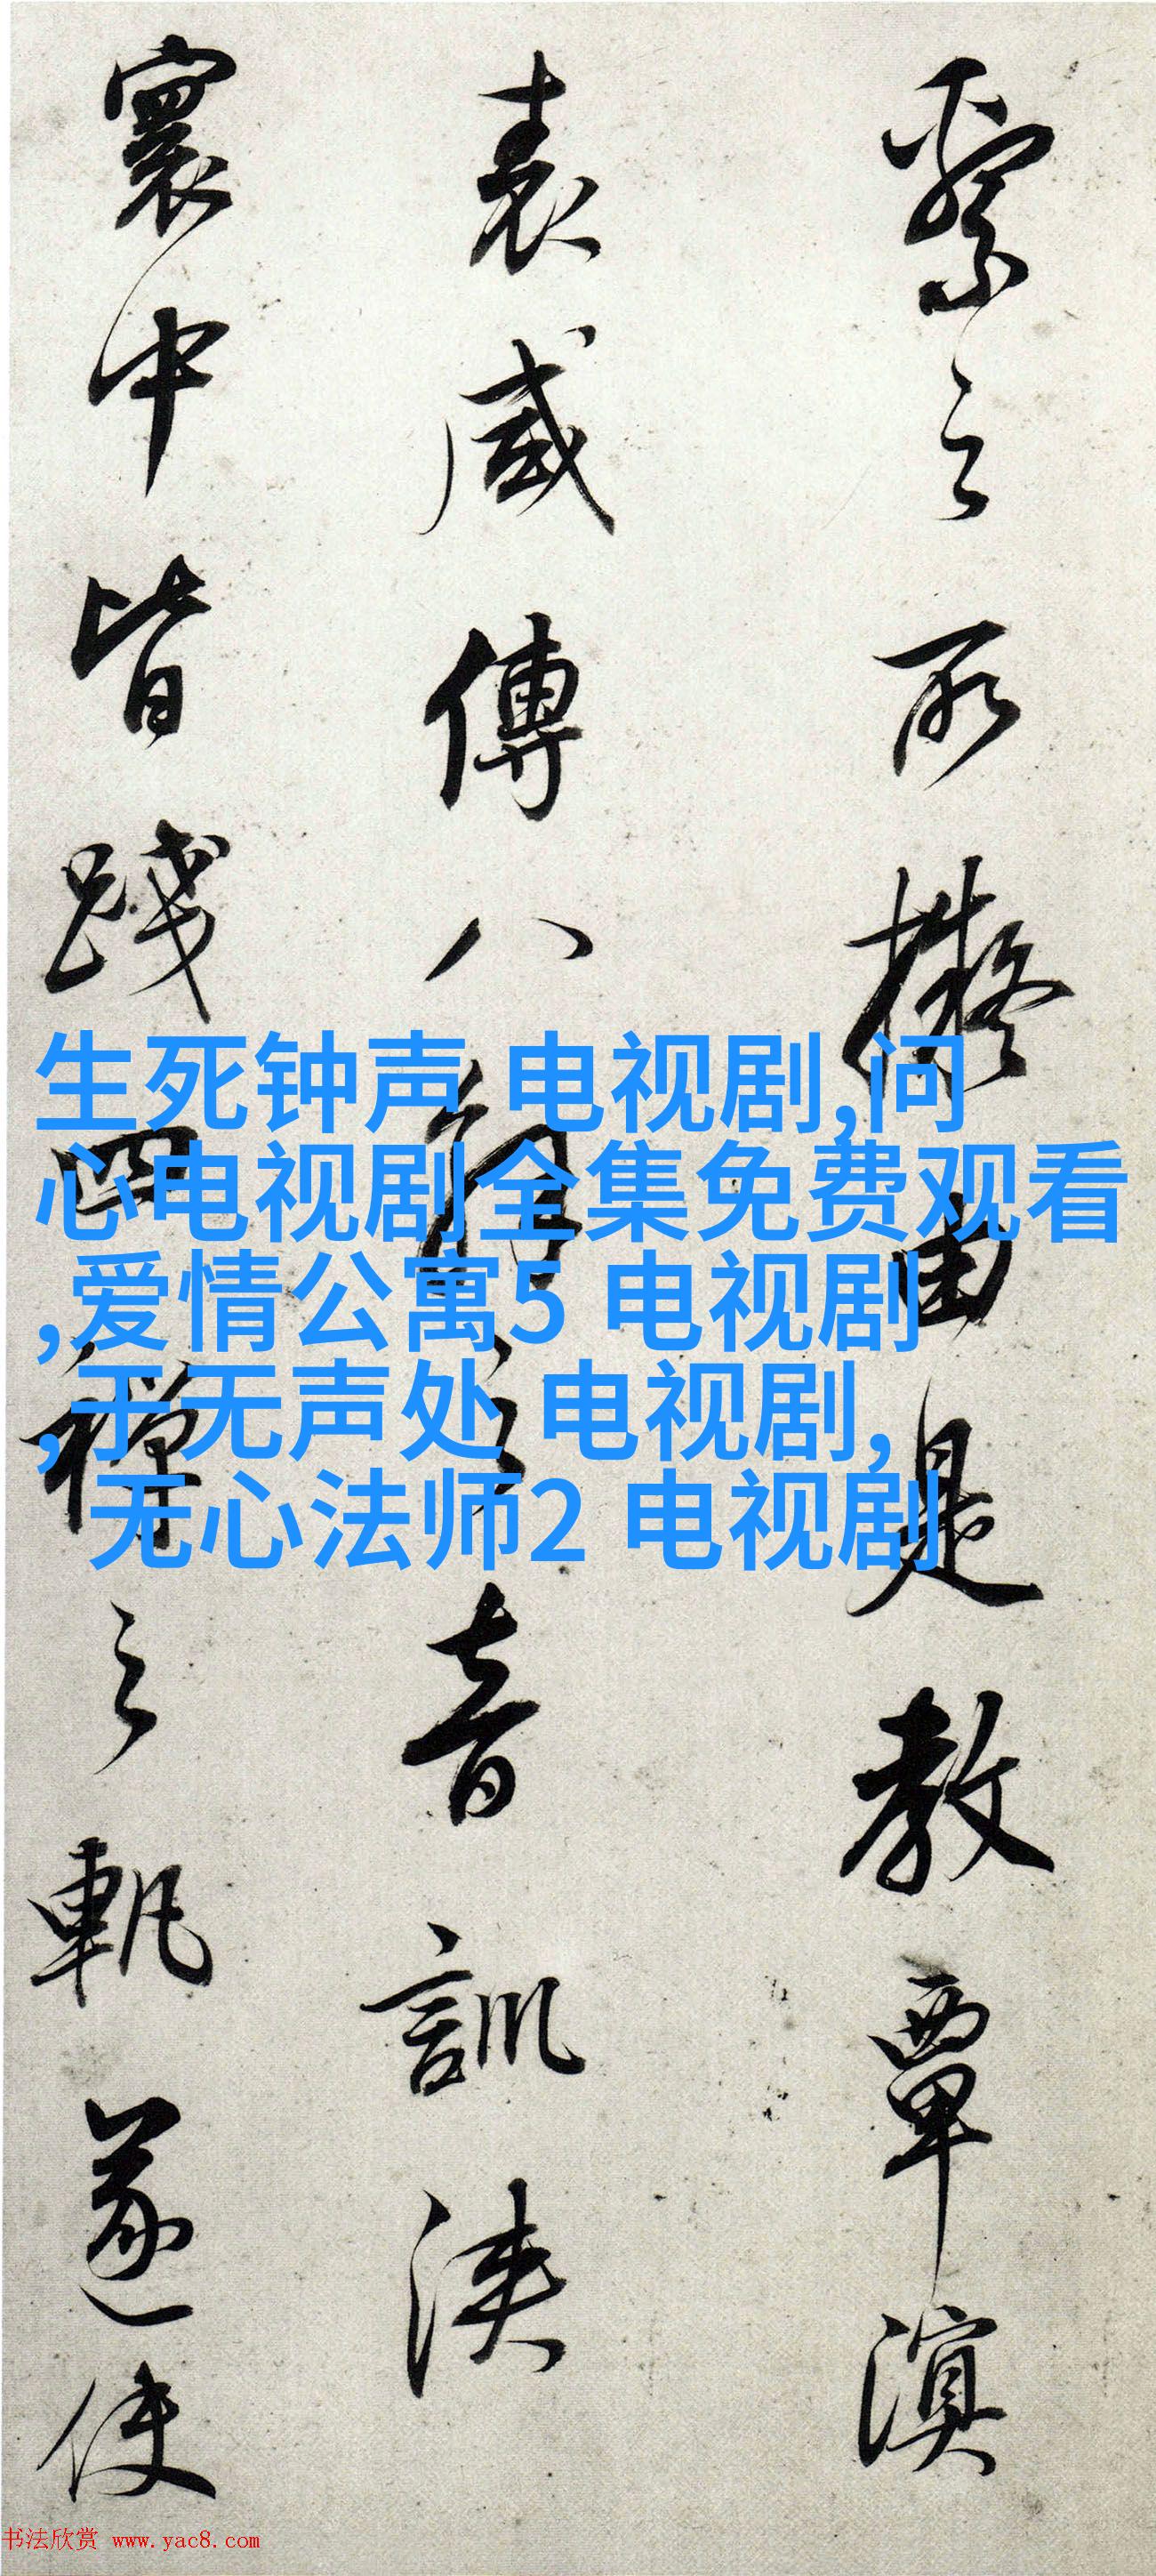 繄之所擬由是教覃溟
表咸傳八解之音訓浹
寰中皆踐四禪之軌遂使
生死钟声 电视剧,问
心电视剧全集免费观看
,爱情公寓5 电视剧
,于无声处 电视剧,
无心法师2 电视剧
书法欣赏 www.yac8.com